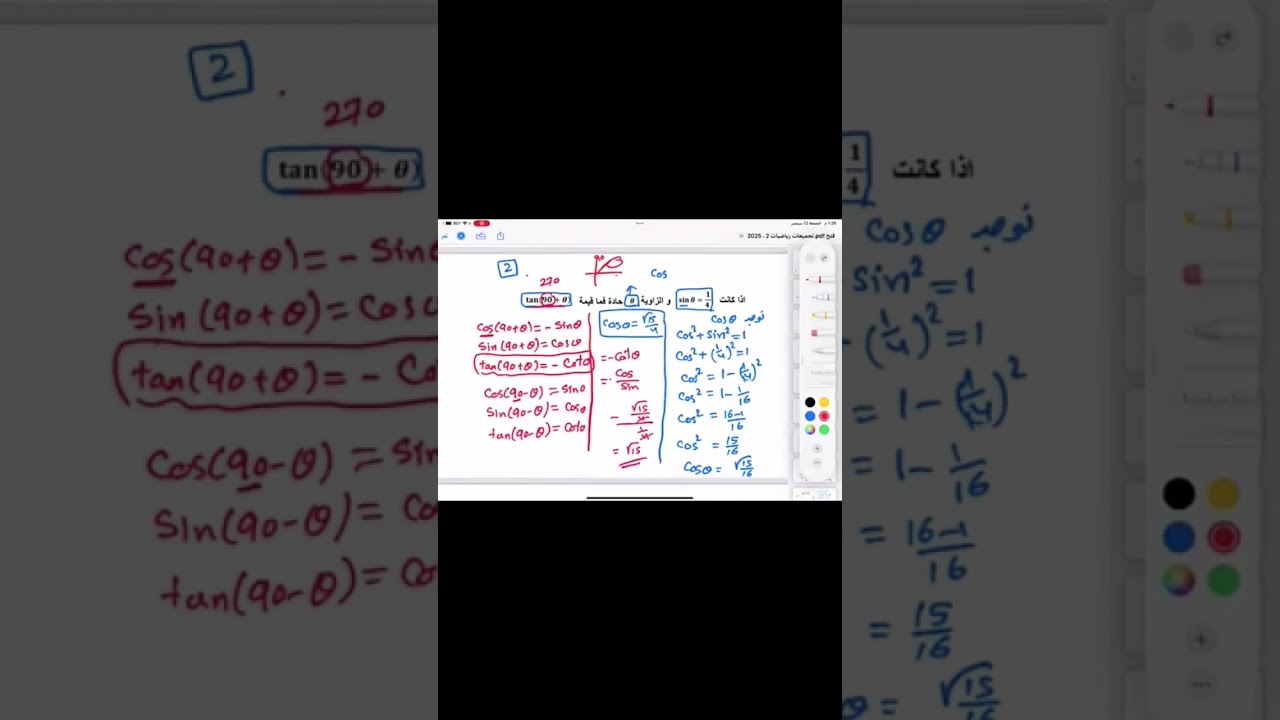 فتح pdf تجميعات رياضيات 2 ، 2025
2
270
90
cos
اذا كانت sin θ = 1/4 و الزاوية θ حادة فما قيمة tan(90 + θ)
cos(90+θ) = - sinθ
sin(90+θ) = cosθ
tan(90+θ) = - cotθ
cos(90-θ) = sinθ
sin(90-θ) = cosθ
tan(90-θ) = cotθ
cosθ = √15/4
= - cotθ
= - cos/sin
- (√15/4)/(1/4)
= √15
نوجد cosθ
cos² + sin² = 1
cos² + (1/4)² = 1
cos² = 1 - (1/4)²
cos² = 1 - 1/16
cos² = 16-1/16
cos² = 15/16
cosθ = √15/16